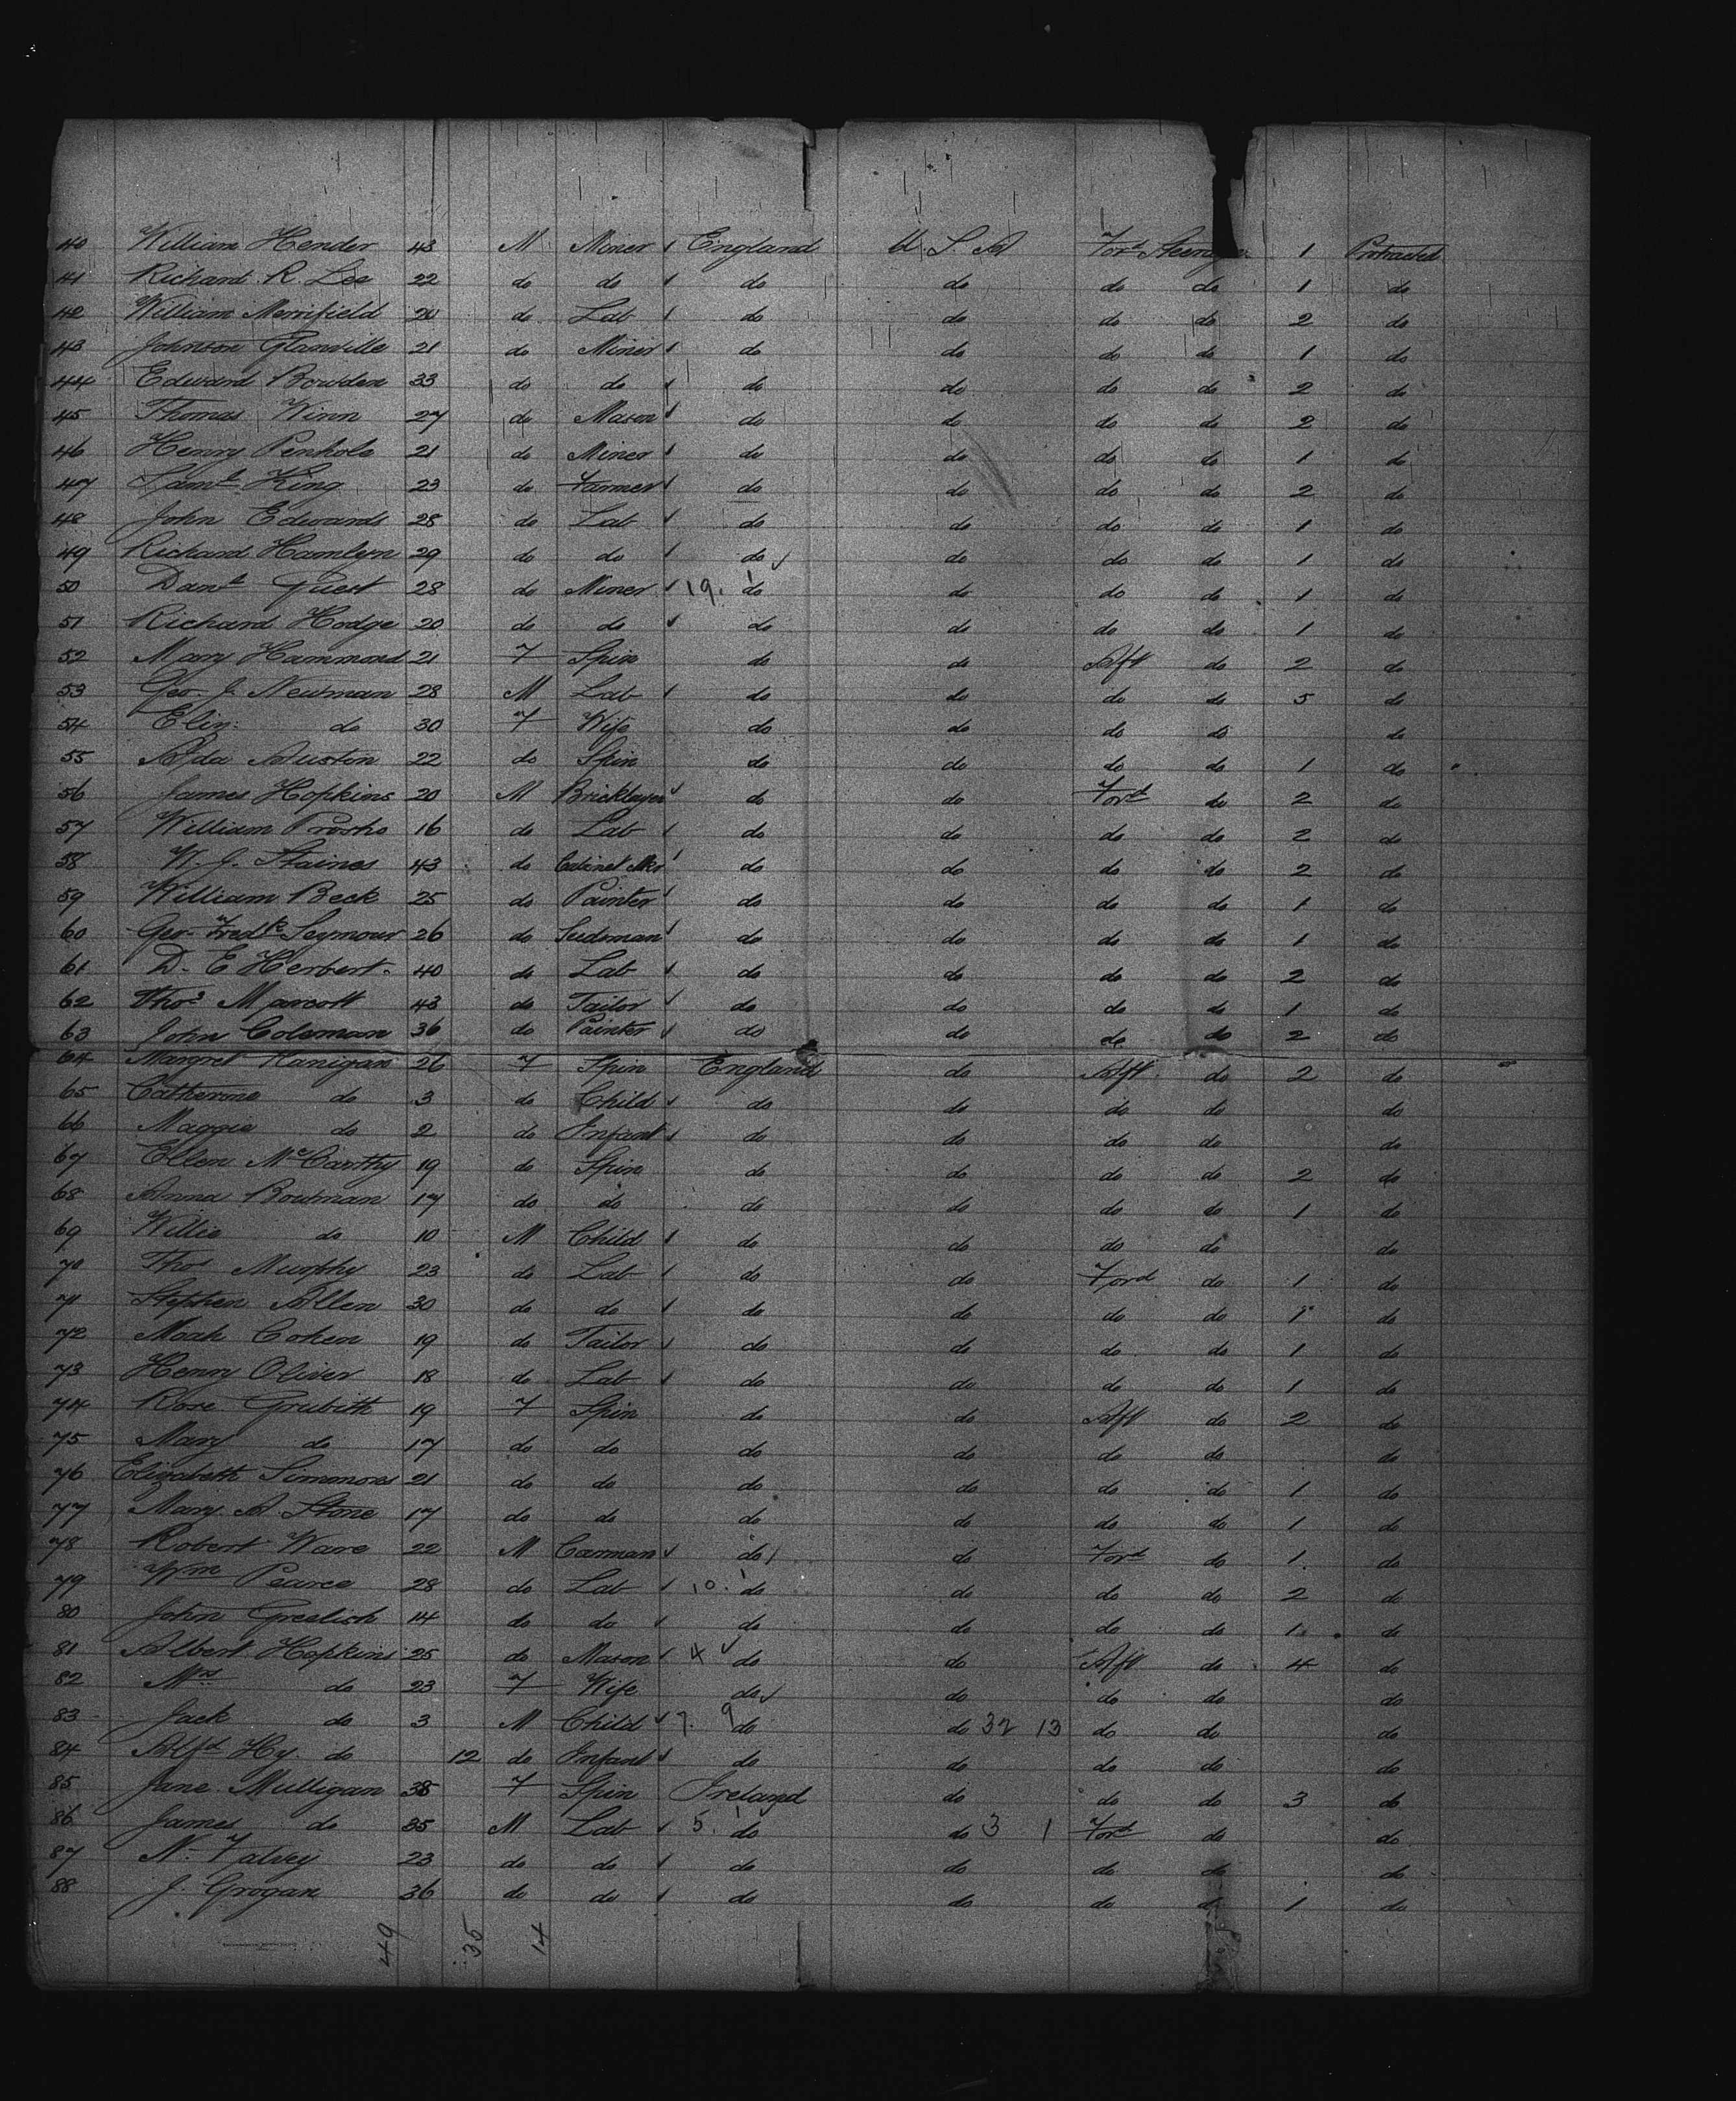 40 William Hender 43 M Miner England U.S.A Ford Steerage 1 Protracted
41 Richard R. Lee 22 do do do do do do 1 do
42 William Merrifield 20 do Lab do do do do 2 do
43 Johnson Glanville 21 do Miner do do do do 1 do
44 Edward Bowden 33 do do do do do do 2 do
45 Thomas Winn 27 do Mason do do do do 2 do
46 Henry Penhole 21 do Miner do do do do 1 do
47 Saml King 23 do Farmer do do do do 2 do
48 John Edwards 28 do Lab do do do do 1 do
49 Richard Hamlyn 29 do do do do do do 1 do
50 Danl Guest 28 do Miner 19. do do do do 1 do
51 Richard Hodge 20 do do do do do do 1 do
52 Mary Hammond 21 F Spin do do Aft do 2 do
53 Geo. J. Newman 28 M Lab do do do do 5 do
54 Eliz: do 30 F Wife do do do do do
55 Ada Auston 22 do Spin do do do do 1 do
56 James Hopkins 20 M Bricklayer do do Ford do 2 do
57 William Prosho 16 do Lab do do do do 2 do
58 W. J. Staines 43 do Cabinet Mkr do do do do 2 do
59 William Beck 25 do Painter do do do do 1 do
60 Geo. Fredk Seymour 26 do Seedsman do do do do 1 do
61 D. E Herbert. 40 do Lab do do do do 2 do
62 Thos Marcott 43 do Tailor do do do do 1 do
63 John Coleman 36 do Painter do do do do 2 do
64 Margret Hanigan 26 F Spin England do Aft do 2 do
65 Catherine do 3 do Child do do do do do
66 Maggie do 2 do Infant do do do do do
67 Ellen McCarthy 19 do Spin do do do do 2 do
68 Anna Boutman 17 do do do do do do 1 do
69 Willie do 10 M Child do do do do do
70 Thos Murphy 23 do Lab do do Ford do 1 do
71 Stephen Allen 30 do do do do do do 1 do
72 Moah Cohen 19 do Tailor do do do do 1 do
73 Henry Oliver 18 do Lab do do do do 1 do
74 Rose Grubith 19 F Spin do do Aft do 2 do
75 Mary do 17 do do do do do do do
76 Elizabeth Simmons 21 do do do do do do 1 do
77 Mary A. Stone 17 do do do do do do 1 do
78 Robert Ware 22 M Carman do do Ford do 1 do
79 Wm Pearce 28 do Lab 10. do do do do 2 do
80 John Greelish 14 do do do do do do 1 do
81 Albert Hopkins 25 do Mason 4 do do Aft do 4 do
82 Mrs do 23 F Wife do do do do do
83 Jack do 3 M Child 7. 9 do do 32 13 do do do
84 Alfd Hy. do 12 do Infant do do do do do
85 Jane Mulligan 38 F Spin Ireland do do do 3 do
86 James do 35 M Lab 5. do do 3 1 Ford do do
87 N. Falvey 23 do do do do do do do
88 J. Grogan 36 do do do do do do 1 do
49 35 14